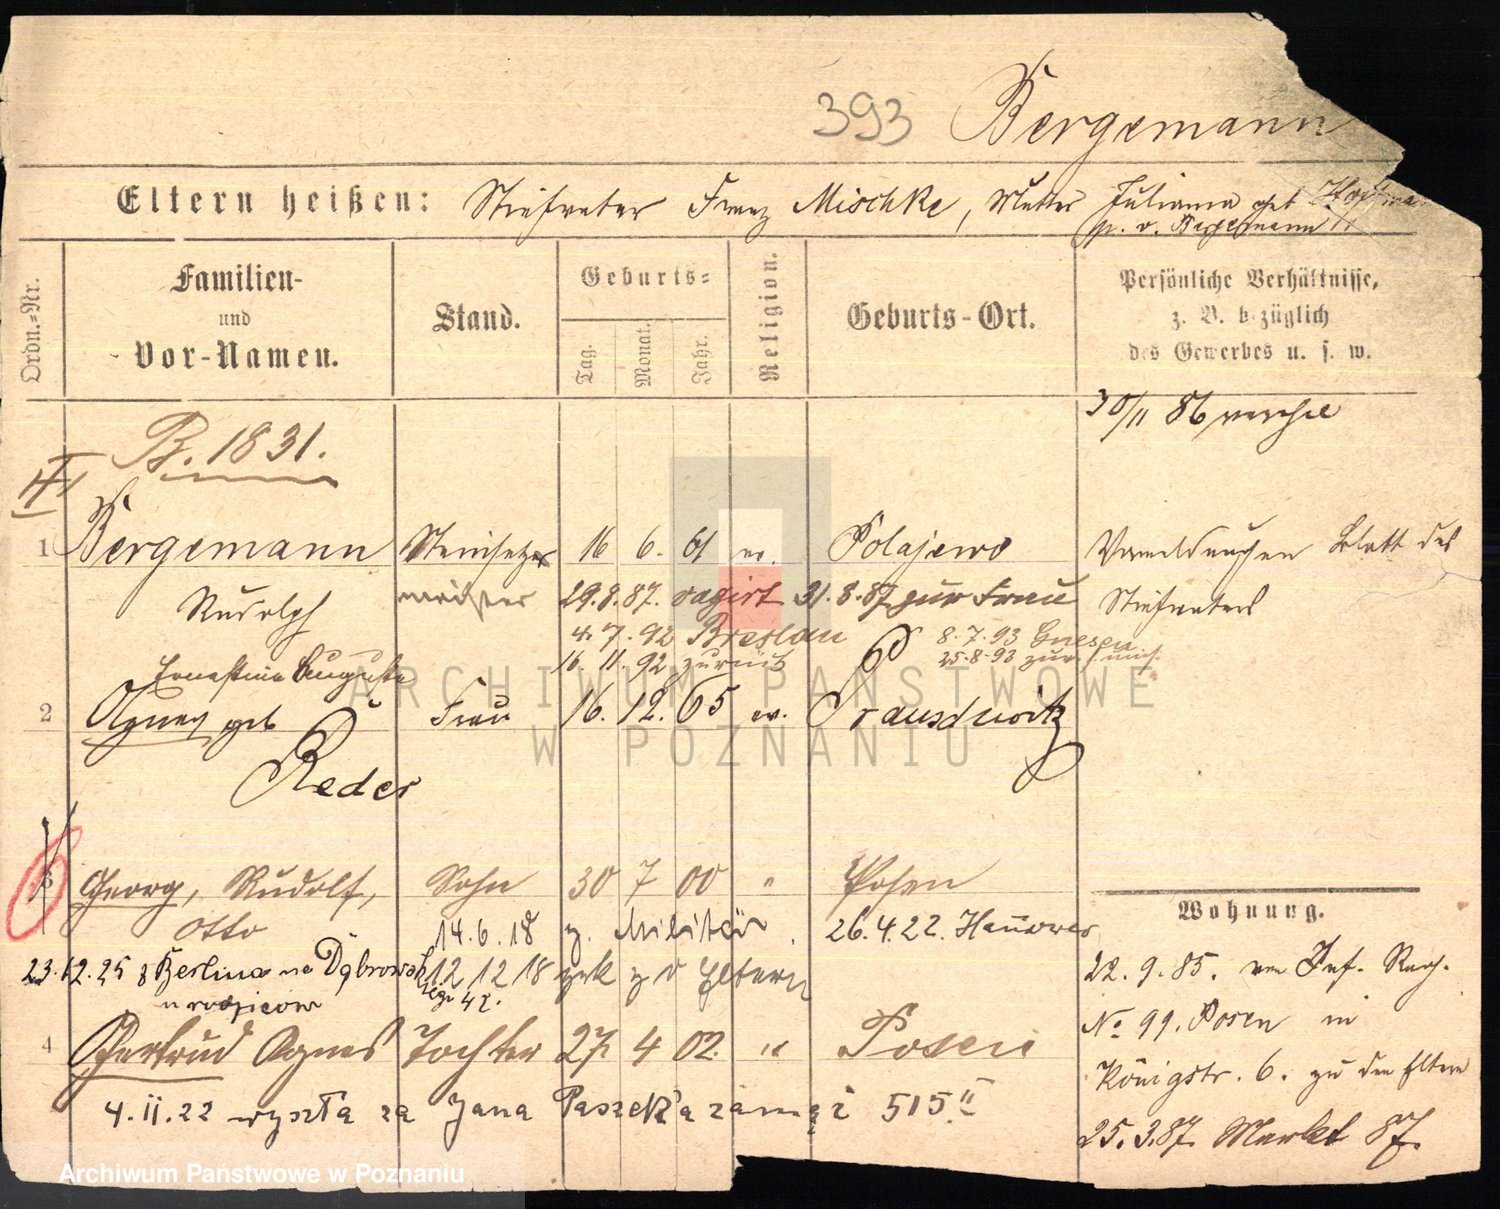 393 Bergemann
Eltern heißen: Stiefvater Franz Mischke, Mutter Juliana geb
Bergemann
Ordn.-Nr.
Familien-
und
Vor-Namen.
Stand.
Geburts-
Tag.
Monat.
Jahr.
Religion.
Geburts-Ort.
Persönliche Verhältnisse,
z. B. bezüglich
des Gewerbes u. s. w.
30/11 86
B. 1831.
1 Bergemann Steinsetzer 16 6. 61 ev. Polajewo
Rudolph meister 29.8.87. vagirt 31.8.87 zur Frau
4.7.92 Breslau 8.7.93 Gnesen
16.11.92 zurück 25.8.93 zur
Ernestine Auguste
2 Agnes geb Frau 16. 12. 65 ev. Prausdnitz
Reder
Blatt des
Stiefvaters
3 Georg, Rudolf, Sohn 30 7 00 " Posen
Otto 14.6.18 z. Militär. 26.4.22. Hannover
23.12.25 z Berlina na Dąbrowsk
iego 42.
12 12 18 zrk z d Eltern
u rodziców
4 Gertrud Agnes Tochter 27 4 02. " Posen
4.II.22 wyszła za Jana Paszek'a zamąż 515 II
Wohnung.
22.9.85. von Inf. Reg.
No 99. Posen in
Königstr. 6. zu den Eltern
25.3.87. Markt 87.
ARCHIWUM PAŃSTWOWE
W POZNANIU
Archiwum Państwowe w Poznaniu